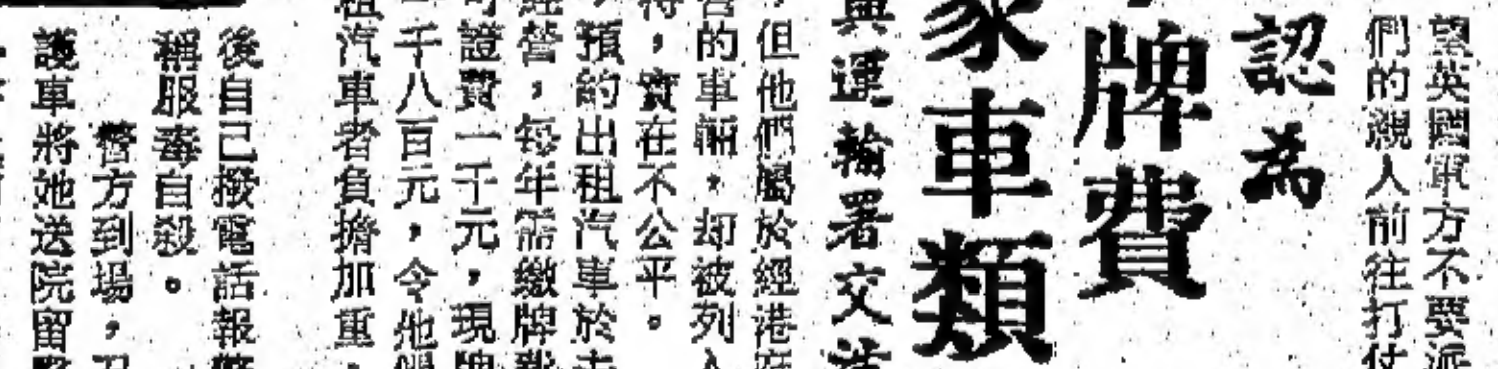 望英國軍方不要派
們的親人前往打仗
認為
牌費
家車類
與運輸署交涉
但他們屬於經港府
的車輛，却被列入
，實在不公平。
預約出租汽車於
經營，每年需繳牌
證費一千元，現牌
千八百元，令他們
租汽車者負擔加重，
後自己撥電話報警
稱服毒自殺。
警方到場，召
護車將她送院留醫